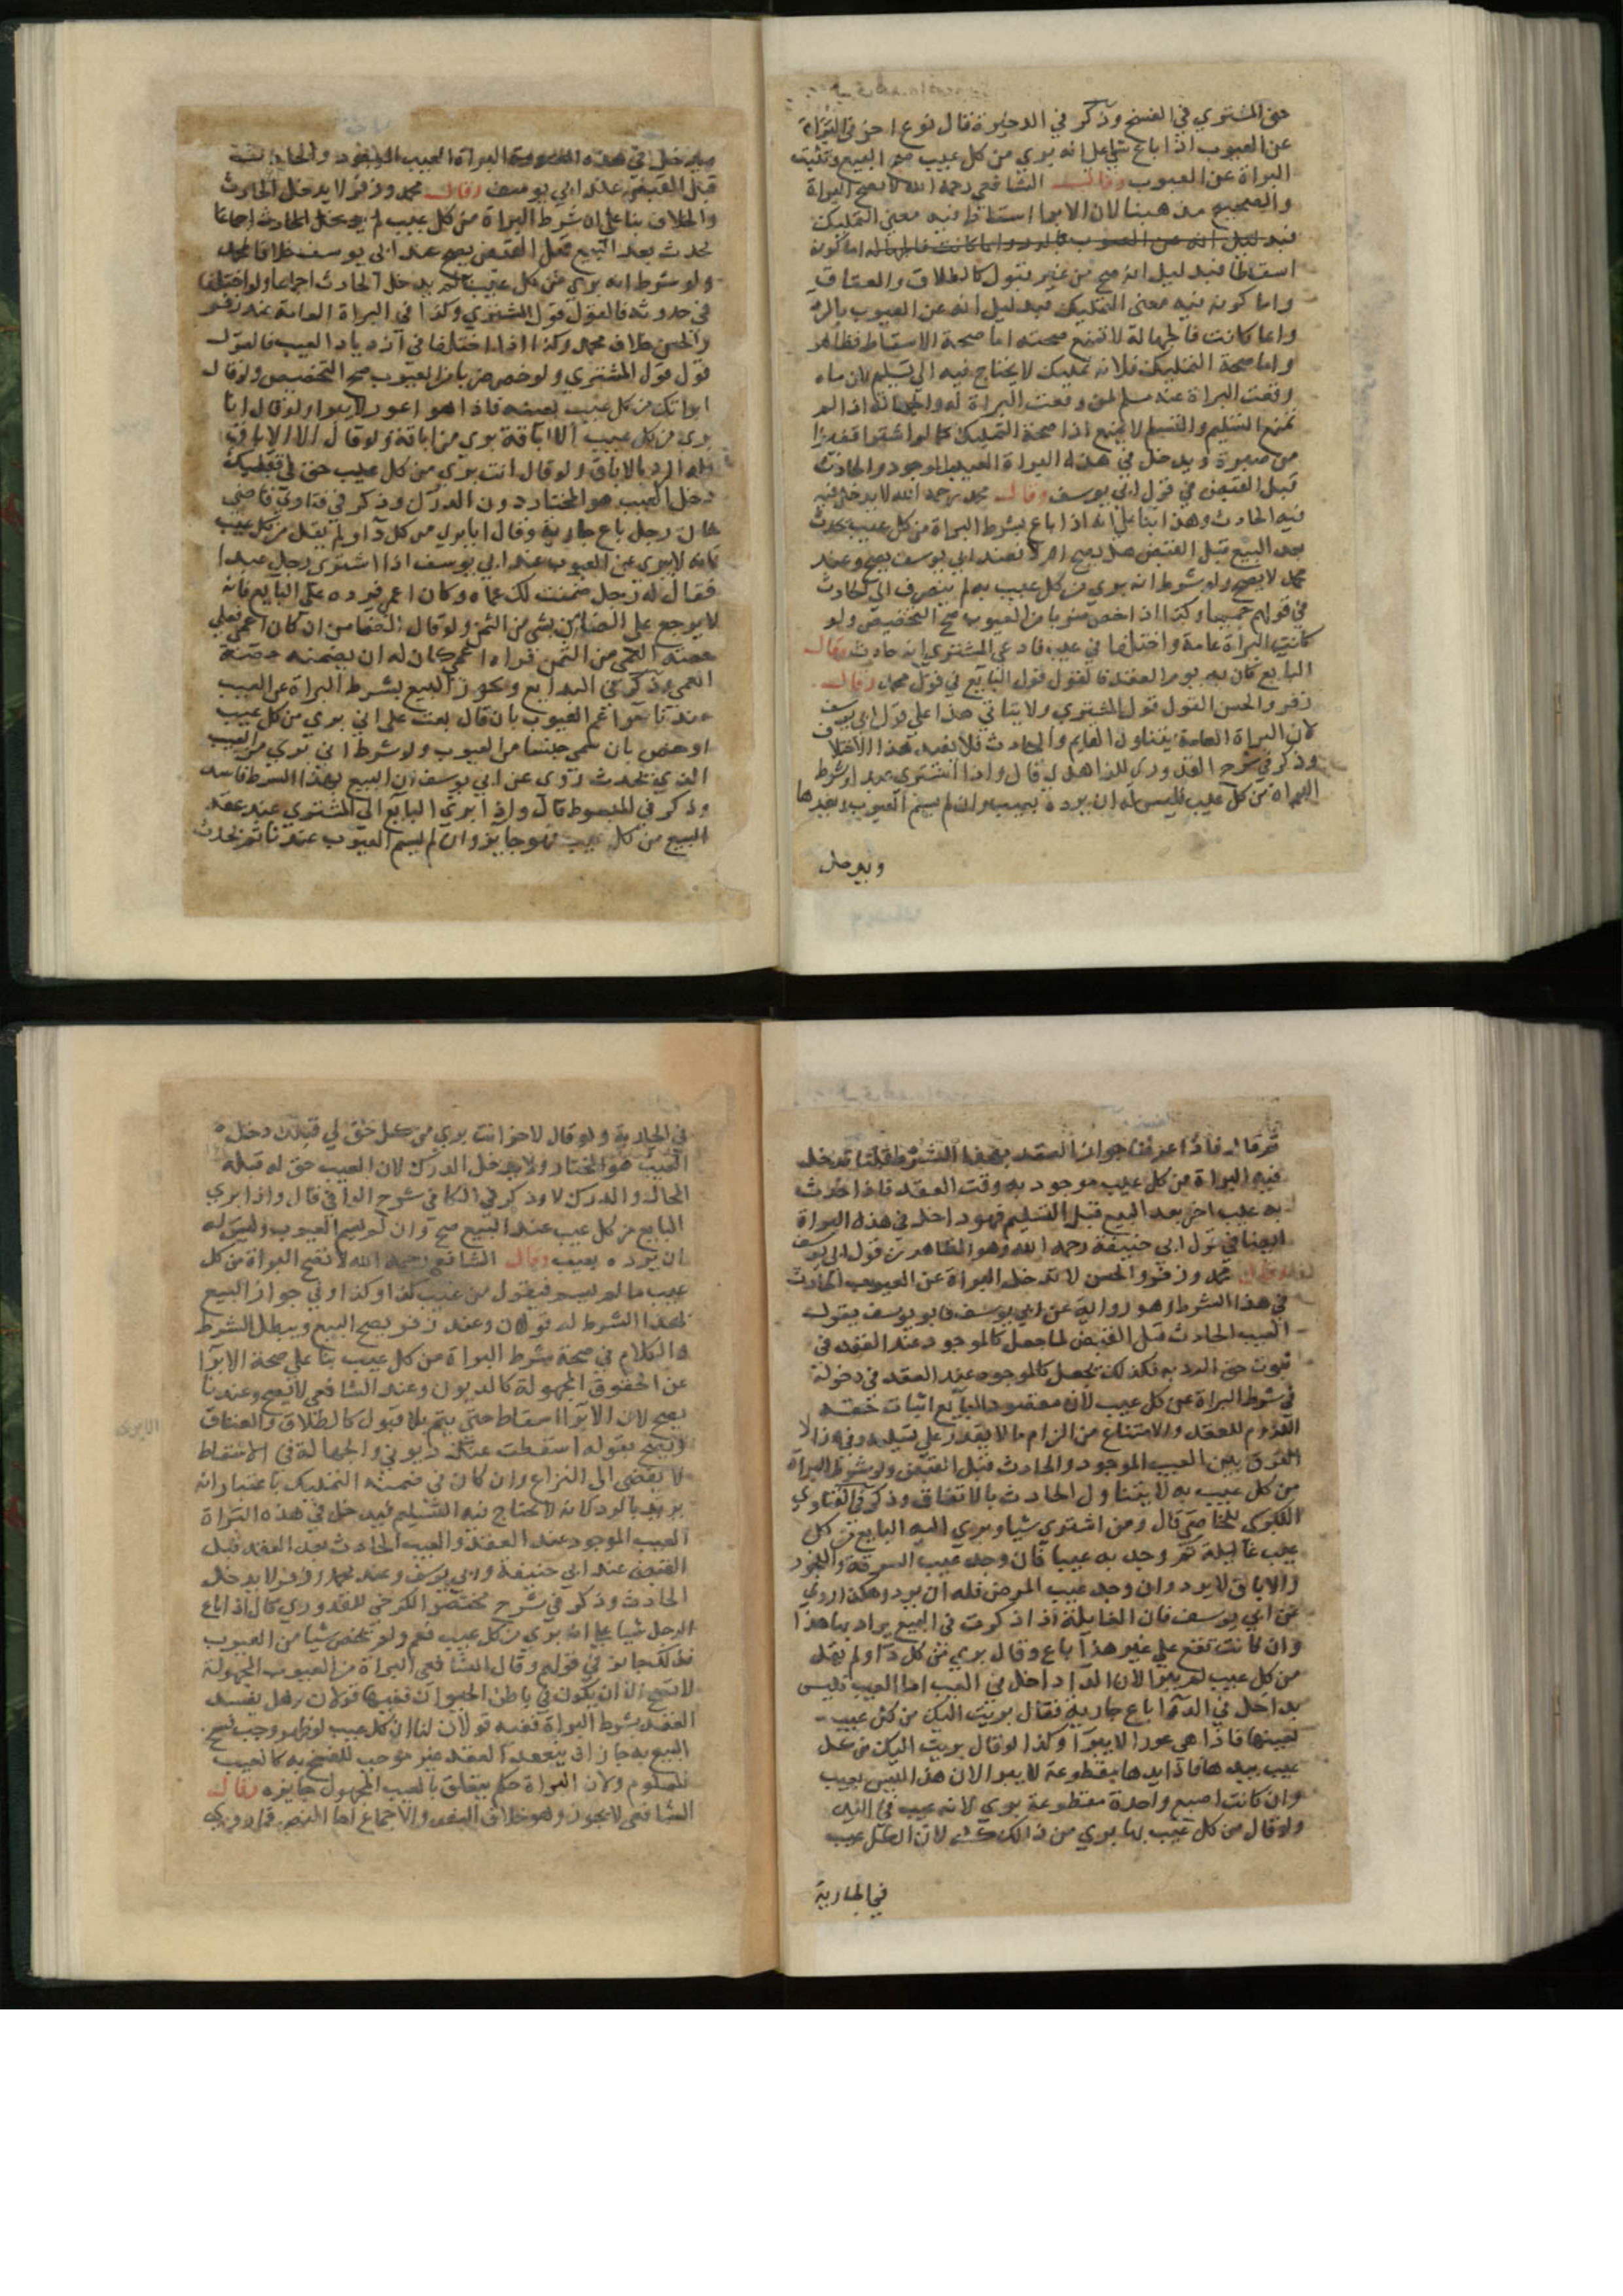 حق المشتري في الفسخ وذكر في الذخيرة قال نوع اخر في البراة
عن العيوب اذا باع شيا على انه بري من كل عيب صح البيع وتثبت
البراة عن العيوب وقال الشافعي رحمه الله لا يصح البراة
والصحيح مذهبنا لان الابرا اسقاط فيه معنى التمليك
فبدليل انه عن العيوب بالرد واما كانت فالجهالة اما كونه
اسقاطا فبدليل انه صح من غير قبول كالطلاق والعتاق
واما كونه فيه معنى التمليك فبدليل انه عن العيوب بالرد
واما كانت فالجهالة لا تمنع صحته اما صحة الاسقاط فظاهر
واما صحة التمليك فلانه تمليك لا يحتاج فيه الى تسليم لان ما
وقعت البراة عنه مسلم لمن وقعت البراة له والجهالة اذا لم
تمنع التسليم والتسلم لا تمنع اذا صحة التمليك كما لو اشترا قفيزا
من صبرة ويدخل في هذه البراة العيب الموجود والحادث
قبل القبض في قول ابي يوسف وقال محمد رحمه الله لا يدخل فيه
فيه الحادث وهذا بنا على انه اذا باع بشرط البراة من كل عيب يحدث
بعد البيع قبل القبض هل يصح ام لا فعند ابي يوسف يصح وعند
محمد لا يصح ولو شرط انه بري من كل عيب به لم ينصرف الى الحادث
في قولهم جميعا وكذا اذا خص ضربا من العيوب صح التخصيص ولو
كانت البراة عامة واختلفا في عيب فادعى المشتري انه حادث وقال
البايع كان به يوم العقد فالقول قول البايع في قول محمد وقال
زفر والحسن القول قول المشتري ولا يتاتي هذا على قول ابي يوسف
لان البراة العامة يتناول القايم والحادث فلا يفيد هذا الاختلاف
وذكر في شرح القدوري للزاهدي قال واذا اشترى عبدا وشرط
البراة من كل عيب فليس له ان يرده بعيب وان لم يسم العيوب بعددها
ويدخل
ويدخل في هذه البراة العيب الموجود والحادث
قبل القبض عند ابي يوسف وقال محمد وزفر لا يدخل الحادث
والخلاف بنا على ان شرط البراة من كل عيب لم يدخل الحادث اجماعا
يحدث بعد البيع قبل القبض يصح عند ابي يوسف خلافا لمحمد
ولو شرط انه بري من كل عيب به لم يدخل الحادث اجماعا ولو اختلفا
في حدوثه فالقول قول المشتري وكذا في البراة العامة عند زفر
والحسن خلاف محمد وكذا اذا اختلفا في ازدياد العيب فالقول
قول قول المشتري ولو خص ضربا من العيوب صح التخصيص ولو قال
ابراتك من كل عيب بعينه فاذا هو اعور لا يبرا ولو قال انا
بري من كل عيب الا اباقه بري من اباقه ولو قال الا الاباق
فله الرد بالاباق ولو قال انت بري من كل عيب حق لي قبلك
دخل العيب هو المختار دون الدرك وذكر في فتاوي قاضي
خان رجل باع جارية وقال انا بري من كل دا ولم يقل من كل عيب
فانه لا يبرى عن العيوب عند ابي يوسف اذا اشترى رجل عبدا
فقال له رجل ضمنت لك عماه وكان اعمى فرده على البايع فانه
لا يرجع على الضامن بشي من الثمن ولو قال الضامن ان كان اعمى فعلي
حصة العمى من الثمن فرده اعمى كان له ان يضمنه حصة
العمى وذكر في البدايع ويجوز البيع بشرط البراة عن العيب
عندنا سوا عم العيوب بان قال بعت على اني بري من كل عيب
او خص بان سمى جنسا من العيوب ولو شرط اني بري من العيب
الذي يحدث روي عن ابي يوسف ان البيع بهذا الشرط فاسد
وذكر في المبسوط قال واذا ابرى البايع الى المشتري عند عقد
البيع من كل عيب فهو جايز وان لم يسم العيوب عندنا ثم يحدث
ثم قال فاذا عرفنا جواز العقد بهذا الشرط قلنا تدخل
فيه البراة من كل عيب موجود به وقت العقد فاذا حدث
به عيب اخر بعد البيع قبل التسليم فهو داخل في هذه البراة
ايضا في قول ابي حنيفة رحمه الله وهو الظاهر من قول ابي يوسف
محمد وزفر والحسن لا تدخل البراة عن العيوب الحادث
في هذا الشرط وهو رواية عن ابي يوسف فابو يوسف يقول
العيب الحادث قبل القبض لما جعل كالموجود عند العقد في
ثبوت حق الرد به فكذلك يجعل كالموجود عند العقد في دخوله
في شرط البراة عن كل عيب لان مقصود البايع اثبات صفة
اللزوم للعقد والامتناع من الزام ما لا يقدر على تسليمه وفي هذا لا
الفرق بين العيب الموجود والحادث قبل القبض ولو شرط البراة
من كل عيب به لا يتناول الحادث بالاتفاق وذكر في الفتاوي
الكبرى للخاصي قال ومن اشترى شيا وبري اليه البايع من كل
عيب غايلة ثم وجد به عيبا فان وجد عيب السرقة والفجور
والاباق لا يرد وان وجد عيب المرض فله ان يرد وهكذا روي
عن ابي يوسف فان الغايلة اذا ذكرت في البيع يراد بها هذا
وان كانت تقع على غير هذا باع وقال بري من كل دا ولم يقل
من كل عيب لم يبرا لان الدا داخل في العيب اما العيب فليس
بداخل في الدا باع جارية فقال بريت اليك من كل عيب
بعينها فاذا هي عورا لا يبرا وكذا لو قال بريت اليك من كل
عيب بيدها فاذا يدها مقطوعة لا يبرا لان هذا ليس بعيب
وان كانت اصبع واحدة مقطوعة بري لانه عيب في اليد
ولو قال من كل عيب بها بري من ذلك كله لان الكل عيب
في الجارية
في الجارية ولو قال لاخر انت بري من كل حق لي قبلك دخل
العيب هو المختار ولا يدخل الدرك لان العيب حق له قبله
الحال والدرك لا وذكر في الكافي شرح الوافي قال واذا بري
البايع من كل عيب عند البيع صح وان لم يسم العيوب وليس له
ان يرده بعيب وقال الشافعي رحمه الله لا تصح البراة من كل
عيب ما لم يسم فيقول من عيب كذا وكذا وفي جواز البيع
بهذا الشرط له قولان وعند زفر يصح البيع ويبطل الشرط
والكلام في صحة شرط البراة من كل عيب بنا على صحة الابرا
عن الحقوق المجهولة كالديون وعند الشافعي لا يصح وعندنا
يصح لان الابرا اسقاط حتى يتم بلا قبول كالطلاق والعتاق
ويصح بقوله اسقطت عنك ديوني والجهالة في الاسقاط
لا يفضى الى النزاع وان كان في ضمنه التمليك باعتبار انه
يرتد بالرد لانه لا يحتاج فيه التسليم فيدخل في هذه البراة
العيب الموجود عند العقد والعيب الحادث بعد العقد قبل
القبض عند ابي حنيفة وابي يوسف وعند محمد وزفر لا يدخل
الحادث وذكر في شرح مختصر الكرخي للقدوري قال اذا باع
الرجل شيا على انه بري من كل عيب فعم ولم يخص شيا من العيوب
فذلك جايز في قولهم وقال الشافعي البراة من العيوب المجهولة
لا تصح الا ان يكون في باطن الحيوان ففيها قولان وهل يفسد
العقد بشرط البراة ففيه قولان لنا ان كل عيب لو ظهر وجب فسخ
البيع به جاز ان ينعقد العقد غير موجب للفسخ به كالعيب
المعلوم ولان البراة حكم يتعلق بالعيب المجهول جايزه وقال
الشافعي لا يجوز وهو خلاف النص والاجماع اما النص فما روي